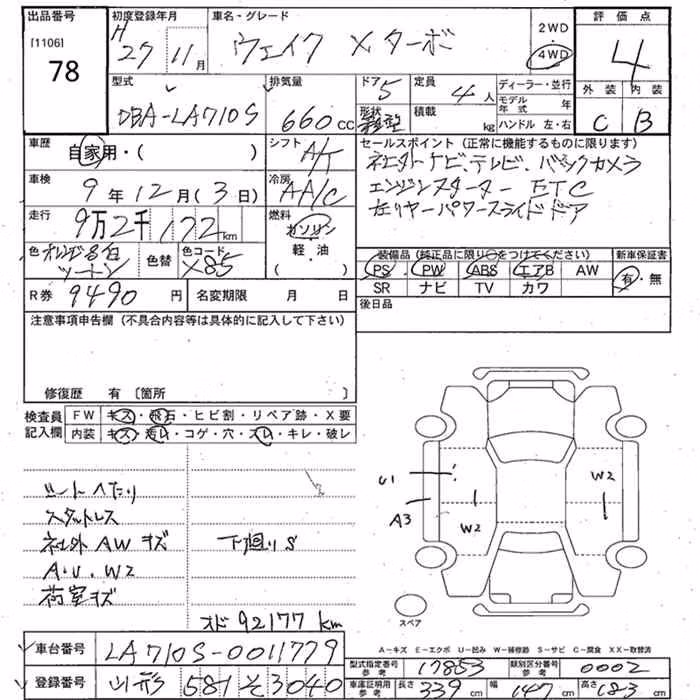 出品番号
[1106]
78
初度登録年月
H
27 11月
車名・グレード
ウェイク Xターボ
2WD
4WD
評価点
4
外装 内装
C B
型式
DBA-LA710S
排気量
660 cc
ドア 5
形状
定員
4人
積載
kg
ディーラー・並行
モデル年式 年
ハンドル 左・右
車歴
自家用・( )
シフト
A/T
セールスポイント (正常に機能するものに限ります)
社外ナビ、テレビ、バックカメラ
エンジンスターター ETC
左リヤーパワースライドドア
車検
9年12月(3日)
冷房
AA/C
走行
9万2千177km
燃料
ガソリン
軽・油
色 オレンジ 白
ツートン
色替
色コード
X85
装備品 (純正品に限り○をつけてください)
新車保証書
PS PW ABS エアB AW
有・無
SR ナビ TV カワ
R券 9490円
名変期限 月 日
後日品
注意事項申告欄 (不具合内容等は具体的に記入して下さい)
修復歴 有 〔箇所
検査員
記入欄
FW キズ・飛石・ヒビ割・リペア跡・X要
内装 キズ・汚レ・コゲ・穴・スレ・キレ・破レ
シートヘたり
スタットレス
社外AWキズ
A・U・W2
荷室キズ
下廻りS
オド92177km
U1
A3
W2
W2
スペア
A-キズ E-エクボ U-凹み W-補修跡 S-サビ C-腐食 XX-取替済
車台番号 LA710S-0011779
登録番号 山形 581 そ 3040
型式指定番号
参考
17853
類別区分番号
参考
0002
車庫証明用
参考
長さ 339cm 幅 147cm 高さ 183cm